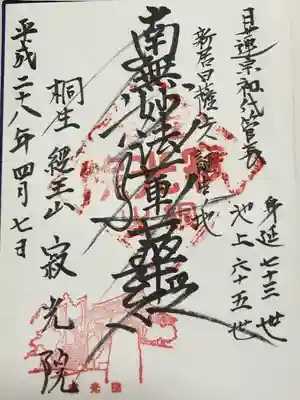 日蓮宗初代管長
身延七十三世
池上六十五世
新居日薩上人誕生地
南無妙法蓮華経
桐生 経王山 寂光院
平成二十八年四月七日
寂光院